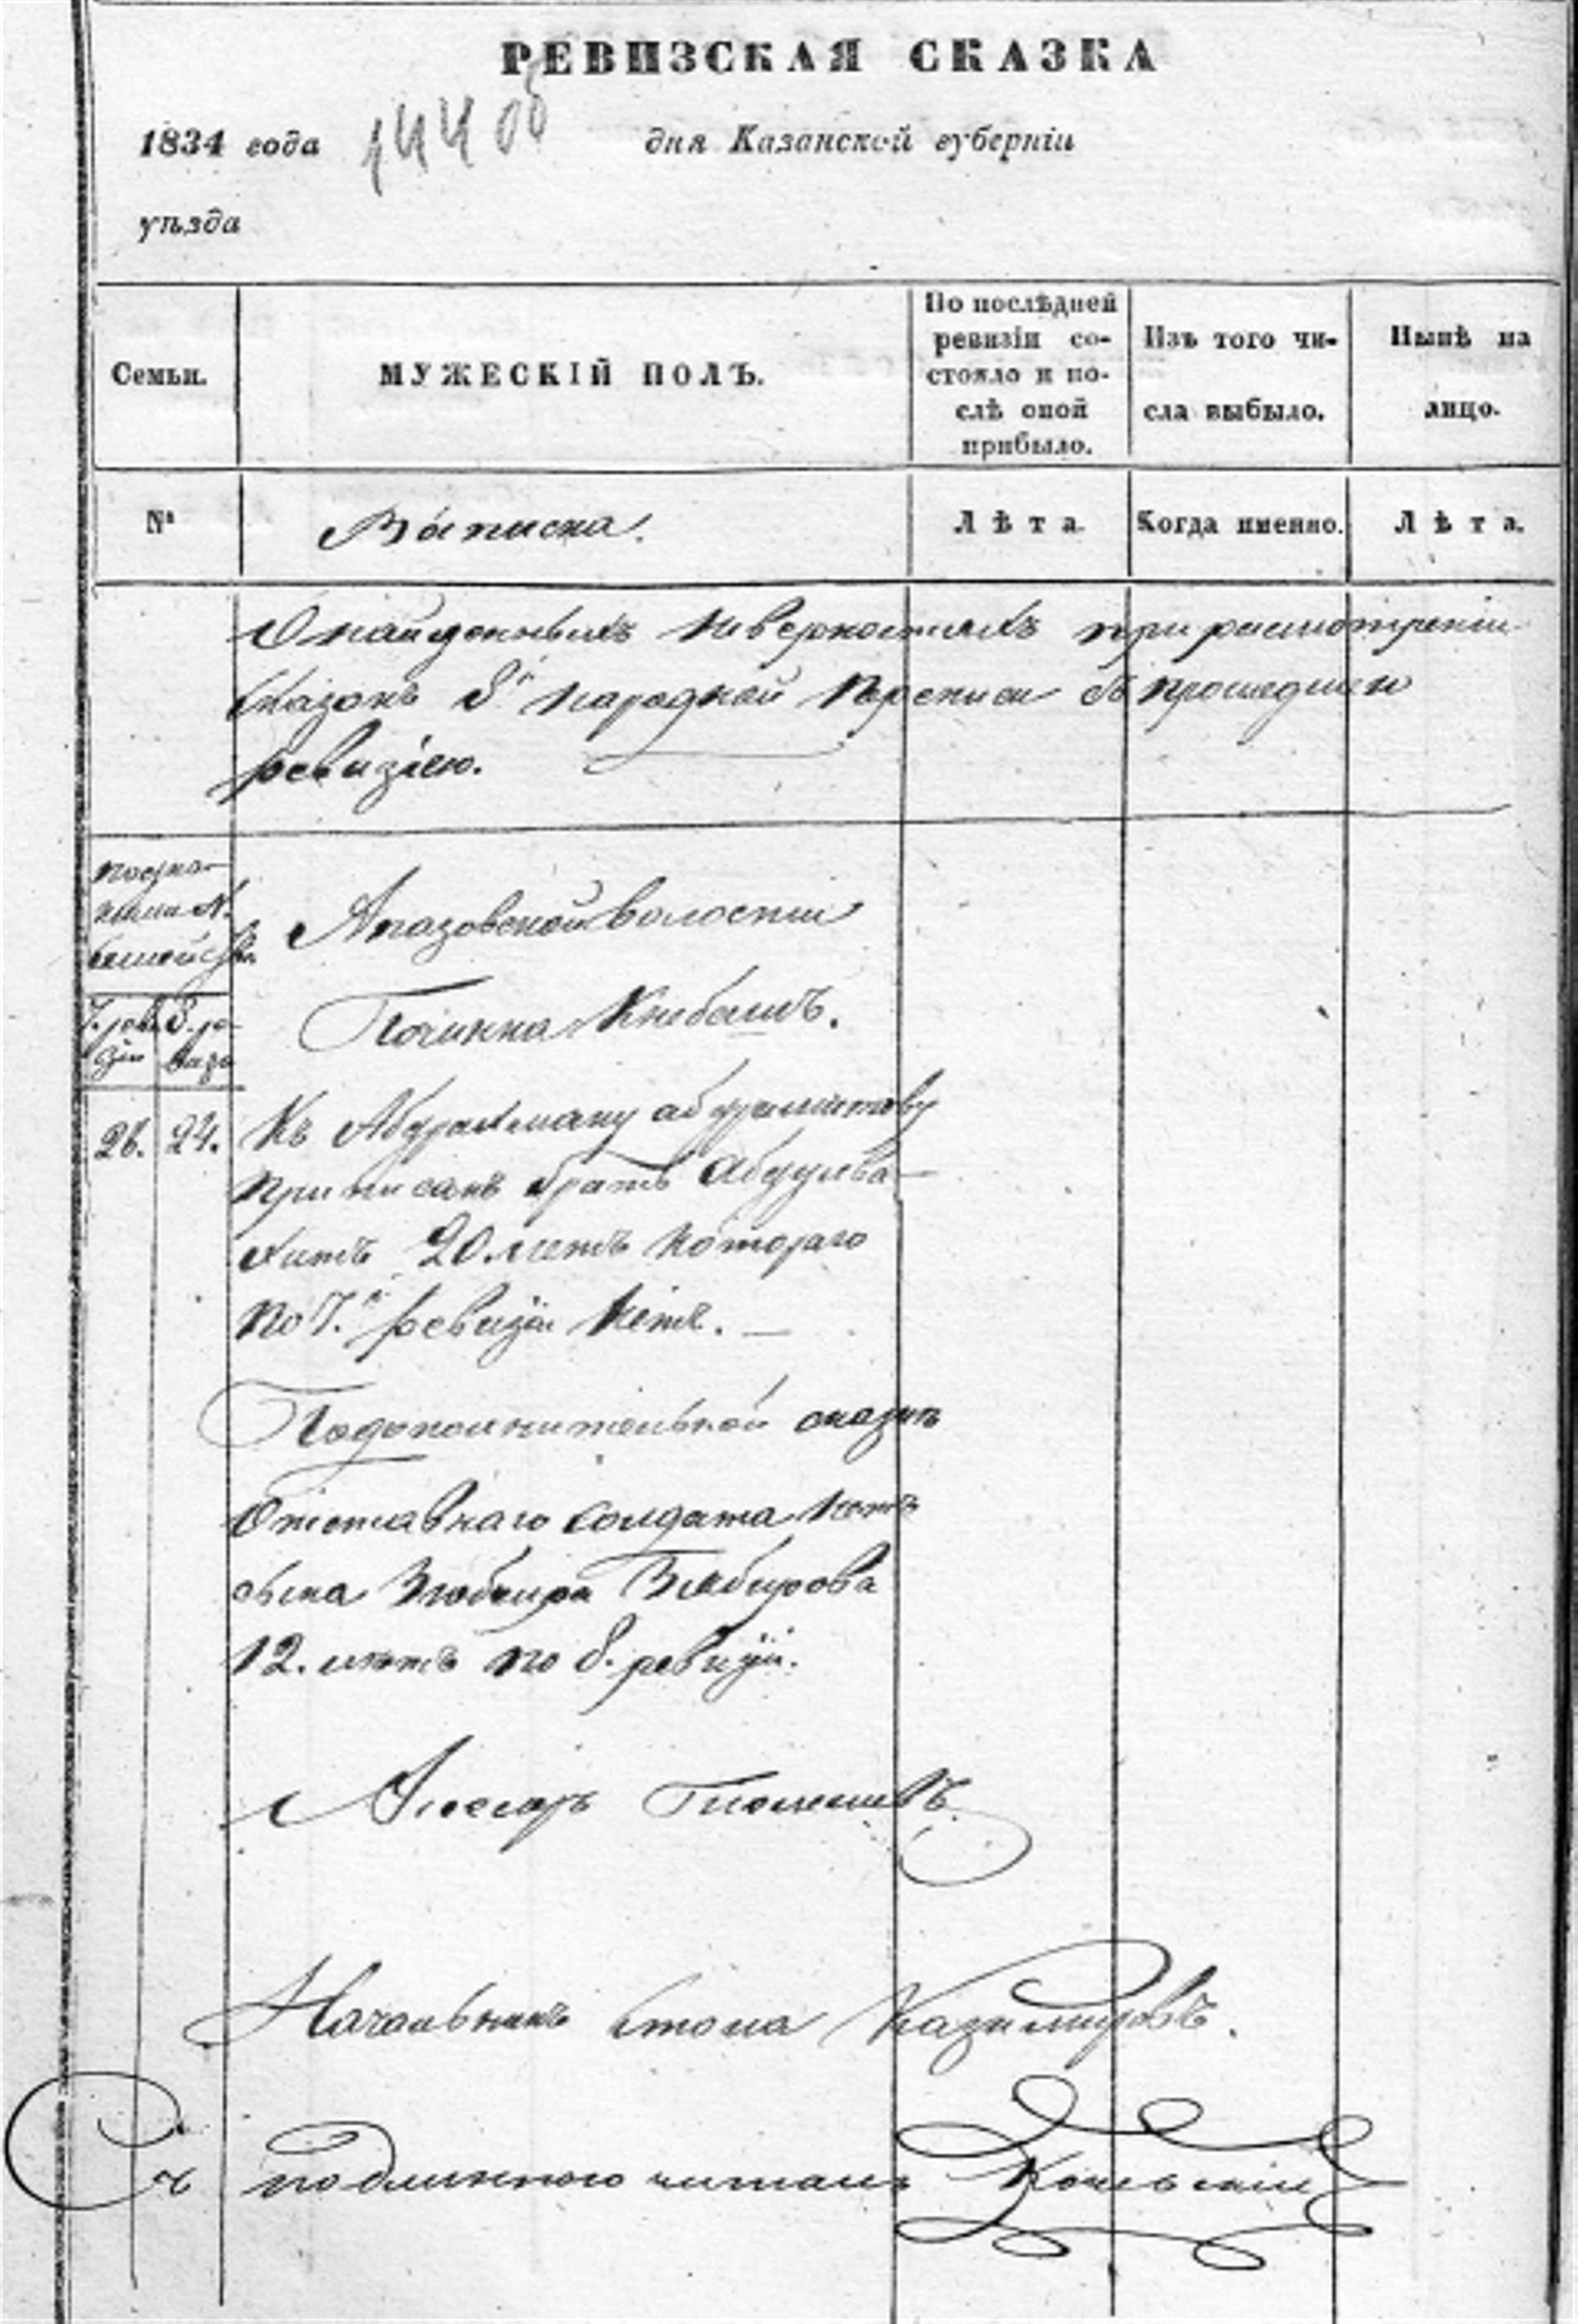 РЕВИЗСКАЯ СКАЗКА
1834 года 144 об дня Казанской губерніи
уѣзда
Семьи.
МУЖЕСКІЙ ПОЛЪ.
По послѣдней
ревизіи со-
стояло и по-
слѣ оной
прибыло.
Изъ того чи-
сла выбыло.
Нынѣ на
лицо.
№
Выписка.
Лѣта.
Когда именно.
Лѣта.
О найденныхъ неверностяхъ при расмотреніи
сказокъ 8й народной переписи съ прошедшею
ревизіею.
семейства
Апазовской волости
7. реви
зіи
8. ре-
визи
Починка
26. 24. Къ Абдрахману
приписанъ братъ Абдулва-
хитъ 20. летъ котораго
по 7.й ревизіи нетъ. —
По дополнительной сказке
Отставнаго солдата нетъ
сына
12. летъ по 8. ревизіи.
Начальникъ стола Казимировъ.
Съ подлинного читалъ